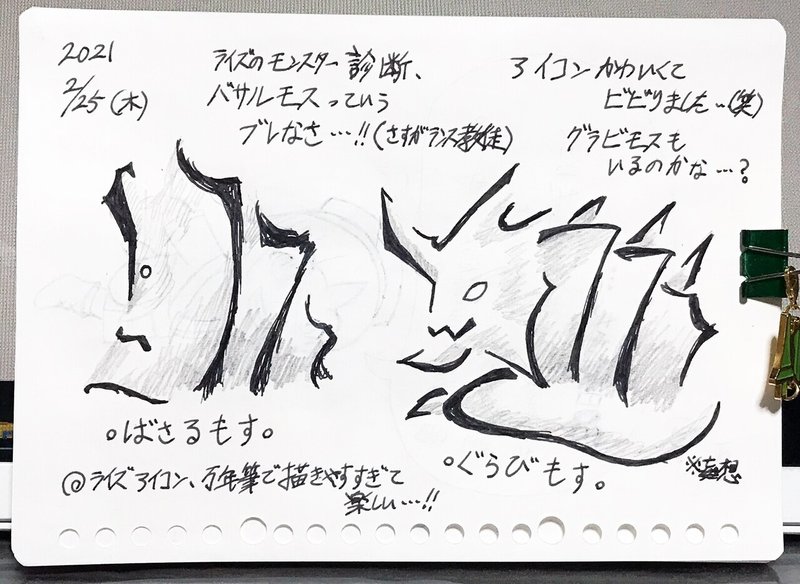 2021
2/25(木)
ライズのモンスター診断、
バサルモスっていう
ブレなさ…!!(さすがランス教徒)
アイコンかわいくて
ビビりました…(笑)
グラビモスも
いるのかな…?
。ばさるもす。
。ぐらびもす。
※妄想
@ライズアイコン、万年筆で描きやすすぎて
楽しい…!!